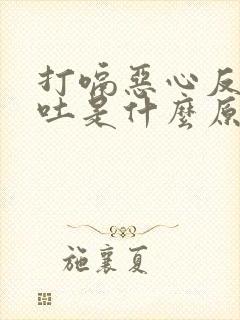 打嗝惡心反
吐是什麼原
施襄夏